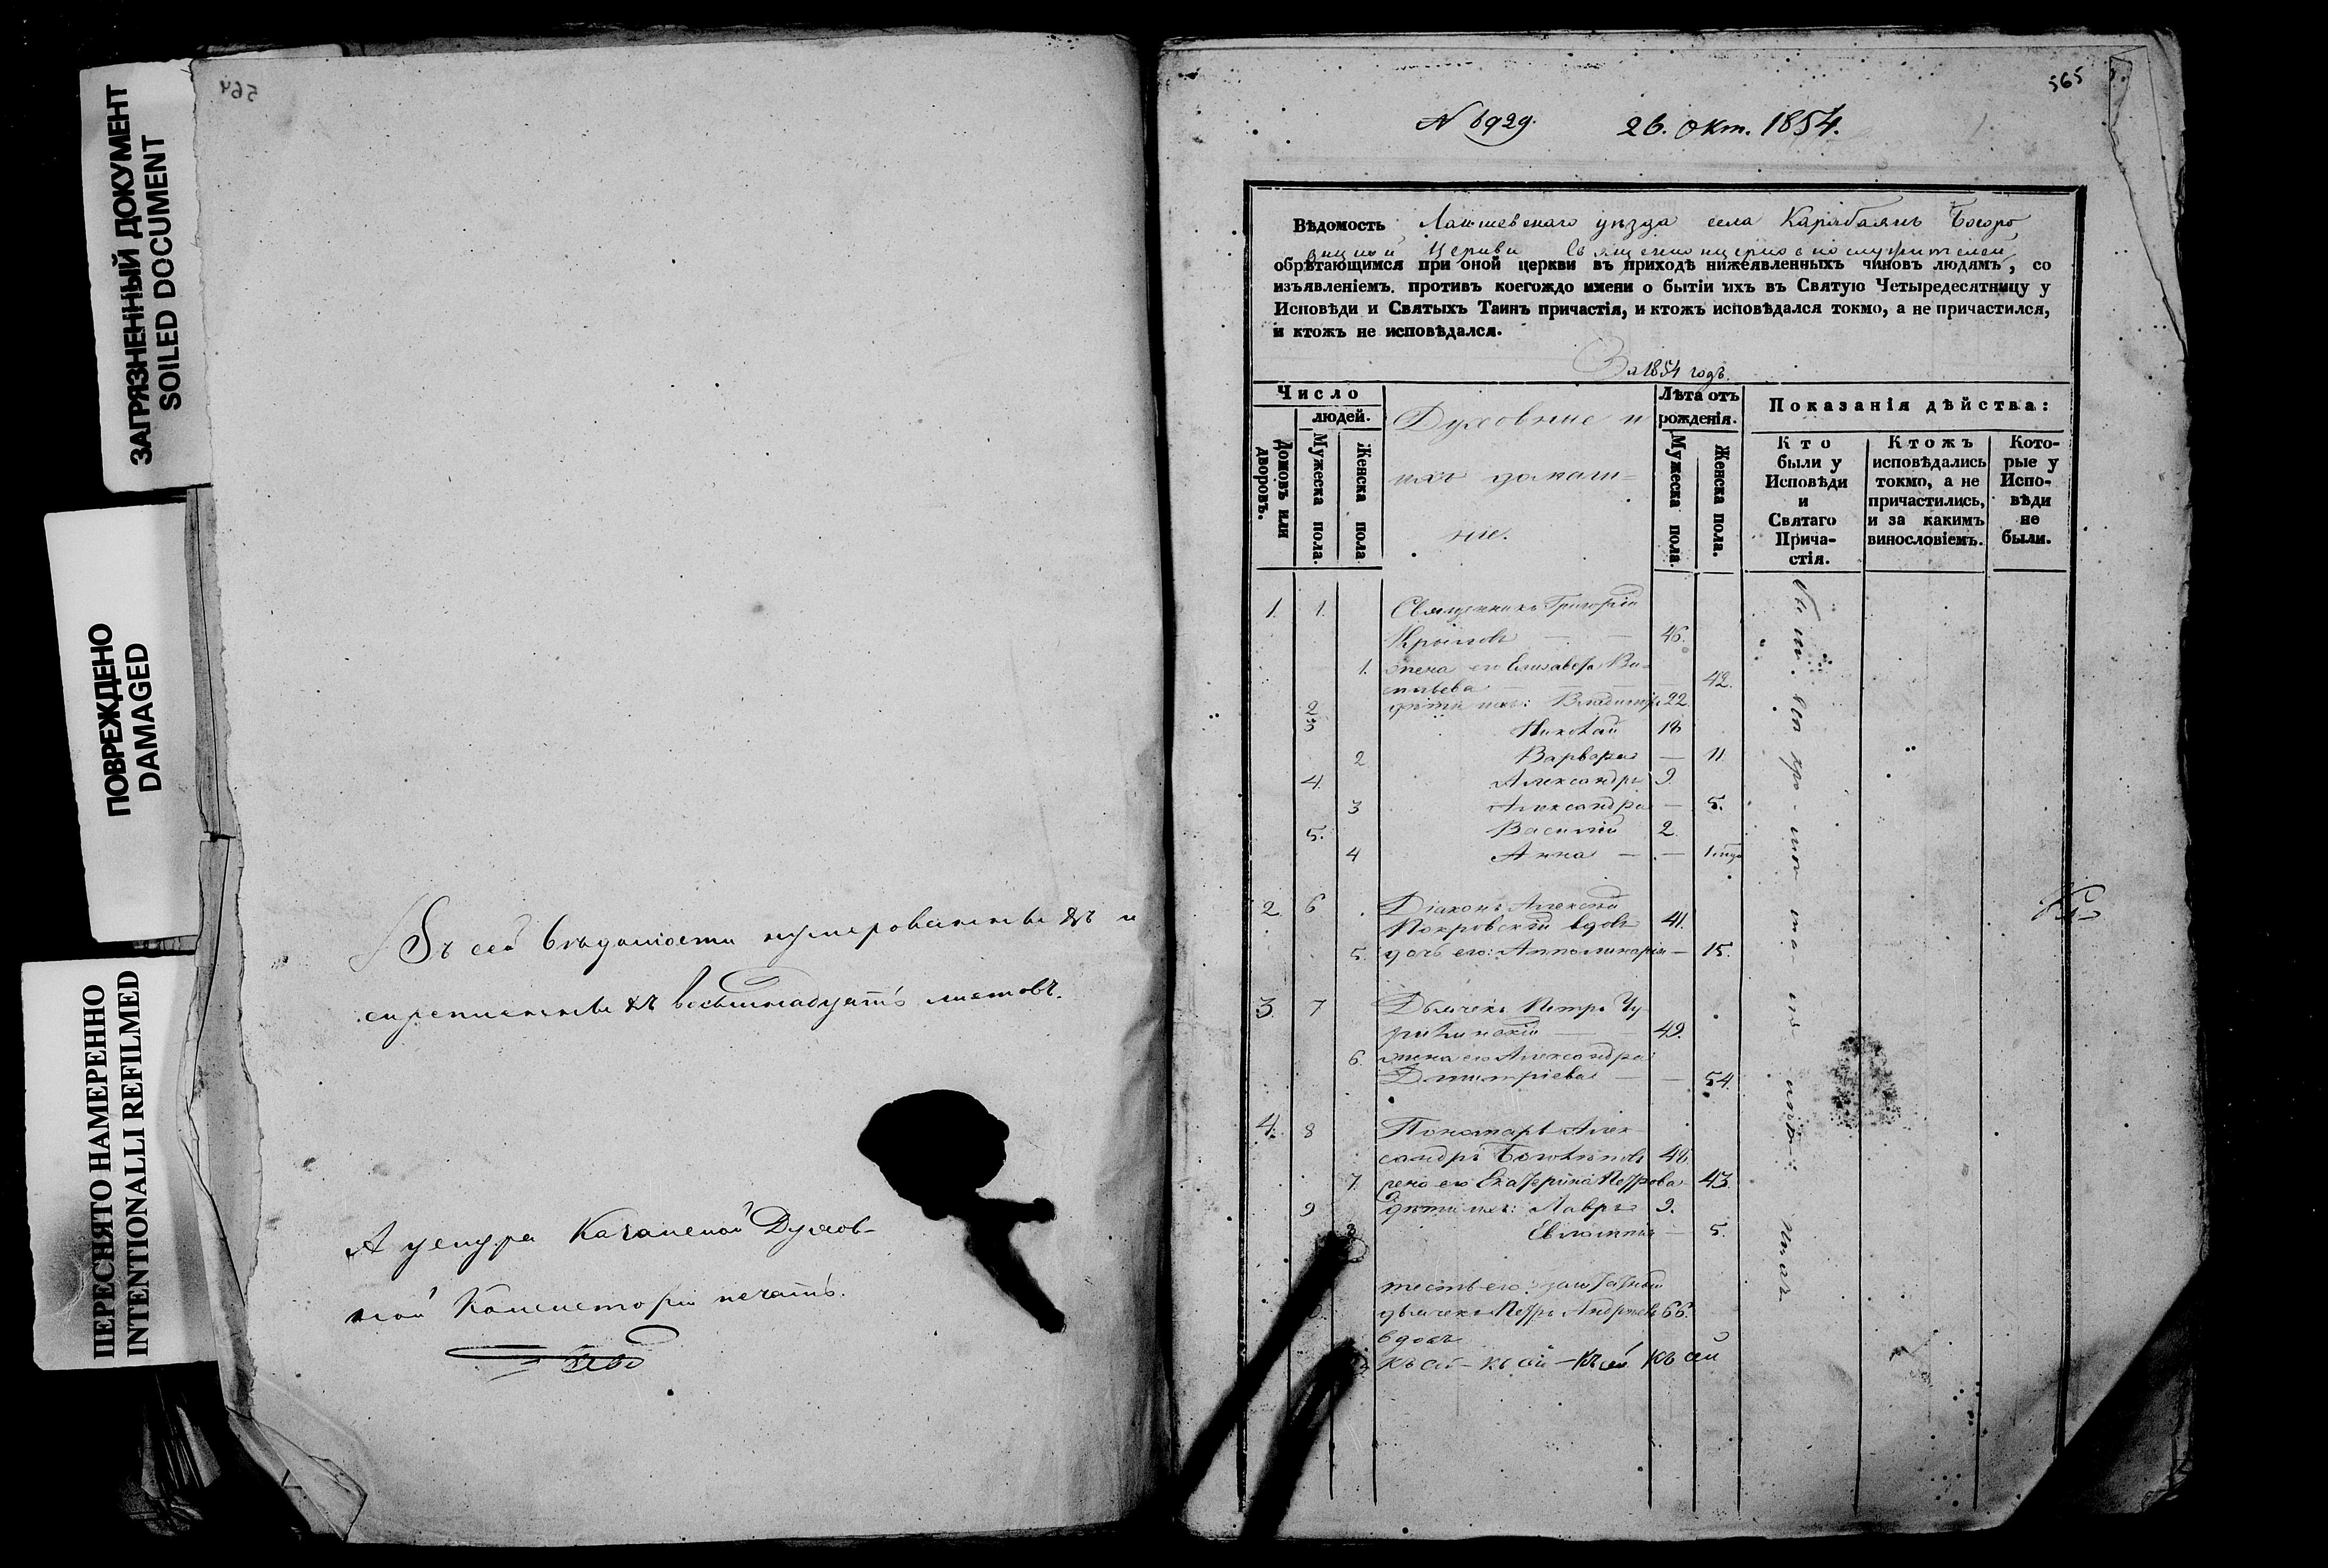 ЗАГРЯЗНЕННЫЙ ДОКУМЕНТ
SOILED DOCUMENT
ПОВРЕЖДЕНО
DAMAGED
ПЕРЕСНЯТО НАМЕРЕННО
INTENTIONALLI REFILMED
564
Въ сей вѣдомости нумерованныхъ и
скрепленныхъ восѣмнадцать листовъ.
А у снура Казанской Духов-
ной Консисторіи печать.
565
N 6929. 26. Окт. 1854.
Вѣдомость Лаишевскаго уѣзда села Карабаянъ Богоро
дицкой Церкви Священноцерковнослужителей
обрѣтающимся при оной церкви въ приходѣ нижеявленныхъ чиновъ людямъ, со
изъявленіемъ противъ коегождо имени о бытіи ихъ въ Святую Четыредесятницу у
Исповѣди и Святыхъ Таинъ причастія, и ктожъ исповѣдался токмо, а не причастился,
и ктожъ не исповѣдался.
За 1854 годъ.
Число
людей.
Домовъ или дворовъ.
Мужеска пола.
Женска пола
Духовные и
ихъ домаш=
ніе.
Лѣта отъ
рожденія.
Мужеска пола.
Женска пола.
Показанія дѣйства:
Кто
были у
Исповѣди
и
Святаго
Прича-
стія.
Ктожъ
исповѣдались
токмо, а не
причастились,
и за какимъ
винословіемъ.
Кото-
рые у
Испо-
вѣди
не
были.
1. 1. Священникъ Григорій
Крыловъ — — 46.
1. жена его Елизавета Ва-
сильева — 42.
2 дѣти ихъ: Владимiръ 22
3 Николай 18
2 Варвара — 11
4. Александръ 9.
3 Александра — 5.
5. Василій 2.
4 Анна — — 1 года
2. 6 Діаконъ Алексѣй
Покровскій вдовъ 41.
5. дочь его: Апполинарія — 15.
3. 7 Дьячекъ Петръ Чу-
49.
6. жена его Александра
Дмитріева — — 54.
4. 8 Пономарь Алек-
сандръ 48.
7. жена его Екатерина Петрова 43.
9 дѣти ихъ: Лавръ 9.
8 Евлампія — 5.
тесть его: заштатный
дьячекъ Петръ Андреевъ 66.
вдовъ
Къ сей — къ сей — Къ сей къ сей